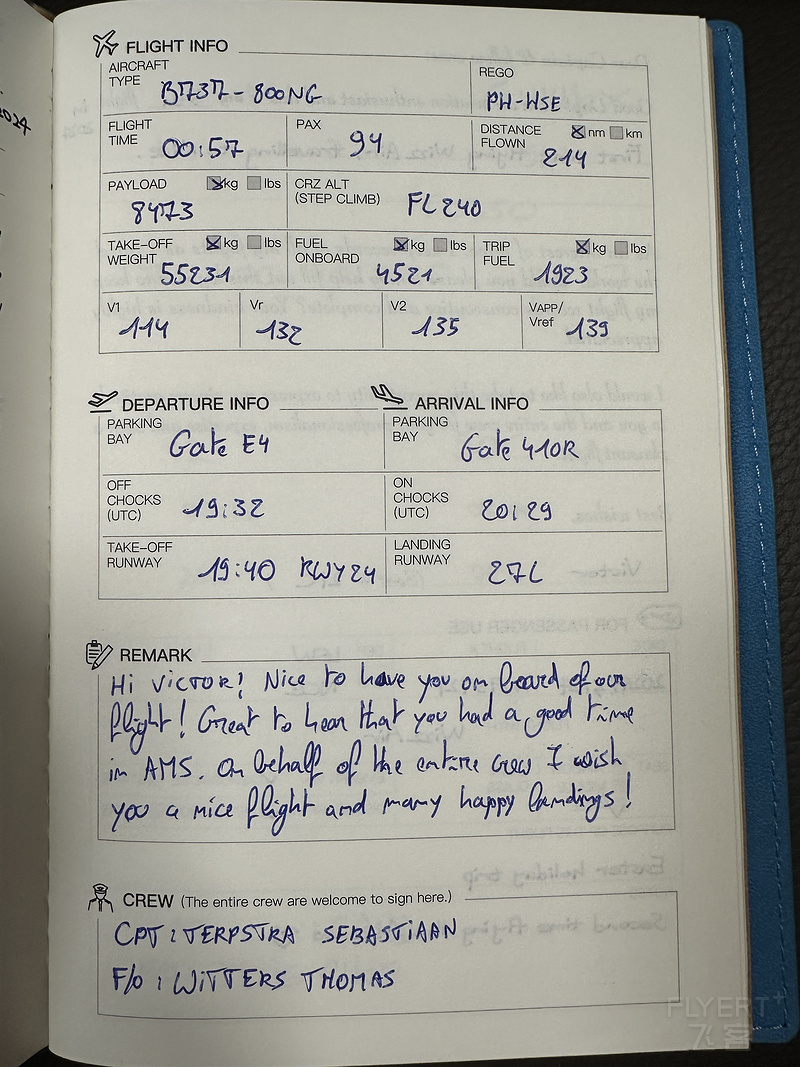 2024
FLIGHT INFO
AIRCRAFT TYPE B737-800NG
REGO PH-HSE
FLIGHT TIME 00:57
PAX 94
DISTANCE FLOWN nm km 214
PAYLOAD kg lbs 8473
CRZ ALT (STEP CLIMB) FL240
TAKE-OFF WEIGHT kg lbs 55231
FUEL ONBOARD kg lbs 4521
TRIP FUEL kg lbs 1923
V1 114
Vr 132
V2 135
VAPP/Vref 139
DEPARTURE INFO
ARRIVAL INFO
PARKING BAY Gate E4
PARKING BAY Gate 410R
OFF CHOCKS (UTC) 19:32
ON CHOCKS (UTC) 20:29
TAKE-OFF RUNWAY 19:40 RWY24
LANDING RUNWAY 27L
REMARK
Hi VICTOR! Nice to have you on board of our
flight! Great to hear that you had a good time
in AMS. On behalf of the entire crew I wish
you a nice flight and many happy landings!
CREW (The entire crew are welcome to sign here.)
CPT : TERPSTRA SEBASTIAAN
F/O : WITTERS THOMAS
FLYERT+
飞客